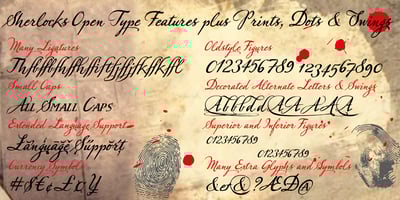 Sherlocks Open Type Features plus Prints, Dots & Swings
Many Ligatures
Small Caps
All Small Caps
Extended Language Support
Language Support
Currency Symbols
Oldstyle Figures
0123456789 1234567890
Decorated Alternate Letters & Swings
Superior and Inferior Figures
0123456789
0123456789
Many Extra Glyphs and Symbols